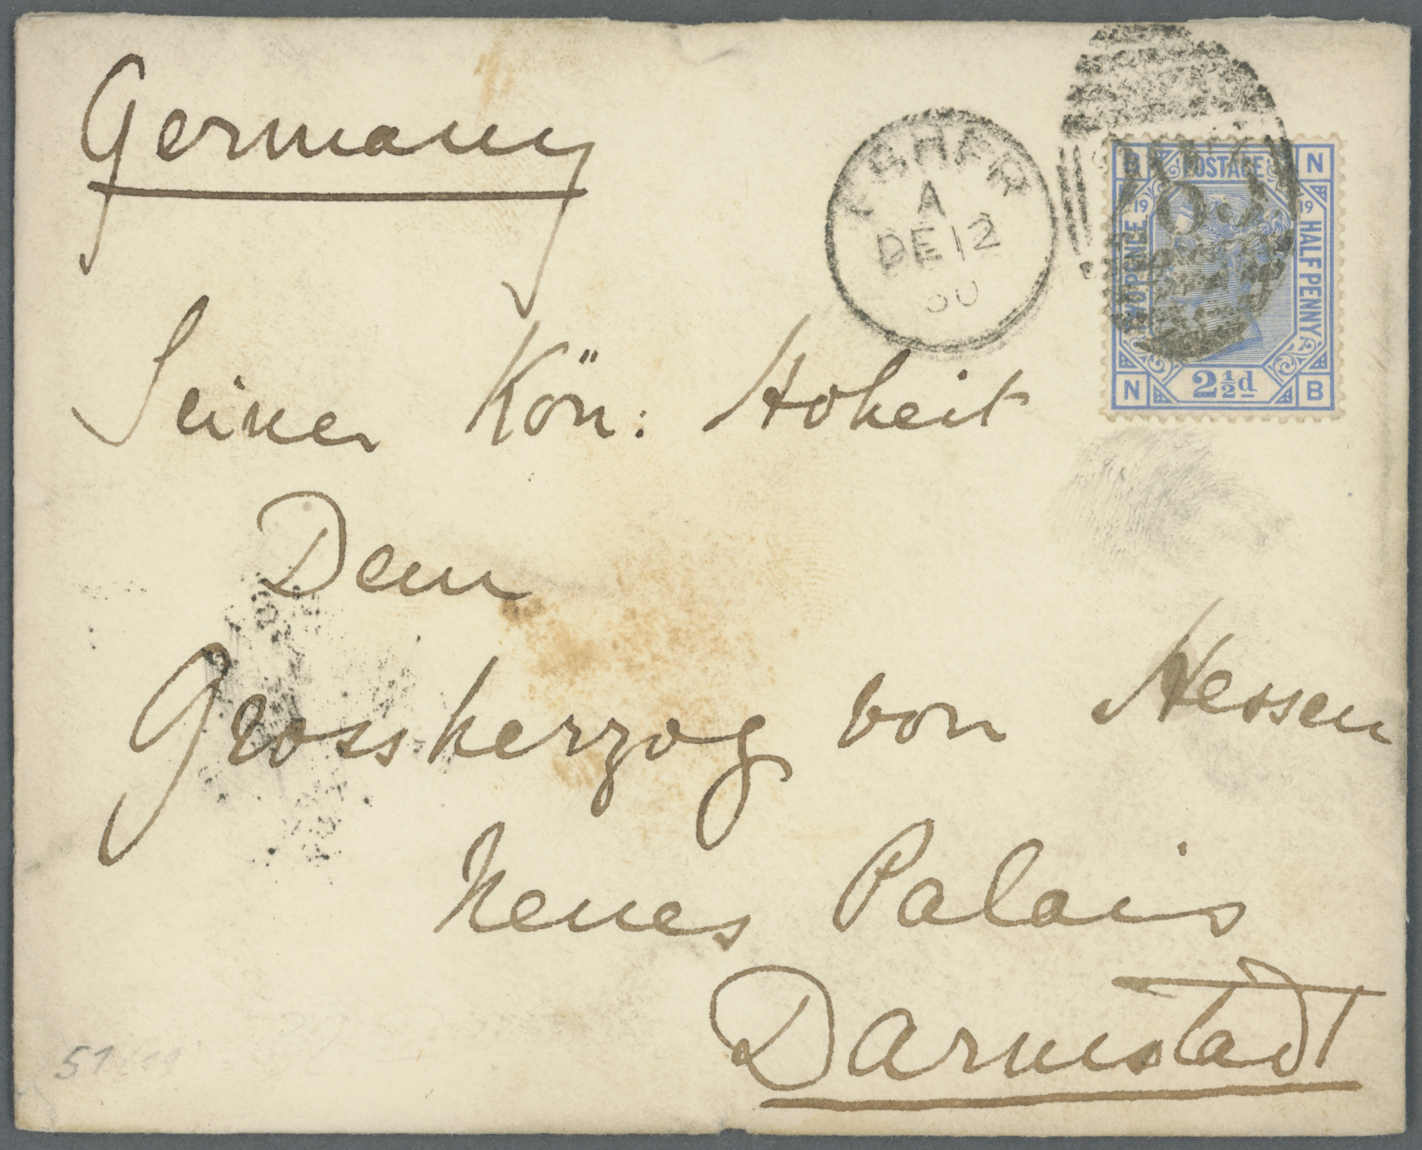 Germany
ESHER
A
DE 12
80
N
POSTAGE
19
19
HALFPENNY
N
2½d
B
Seiner Kön: Hoheit
Dem
Grossherzog von Hessen
Neues Palais
Darmstadt
51